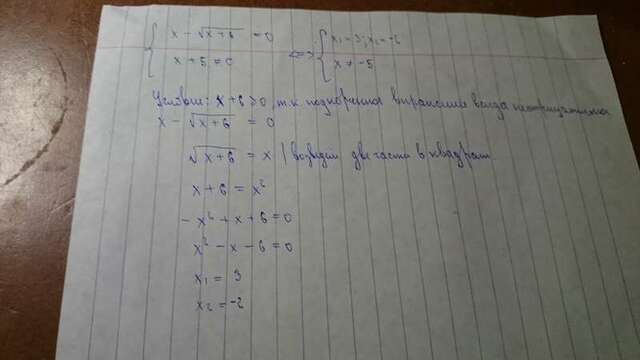 { x - √x+6 = 0 <=> { x₁ = 3; x₂ = -2
x + 5 = 0 x ≠ -5
Условие: x + 6 ≥ 0, т.к подкоренное выражение всегда неотрицательно
x - √x+6 = 0
√x+6 = x | возведём две части в квадрат
x + 6 = x²
- x² + x + 6 = 0
x² - x - 6 = 0
x₁ = 3
x₂ = -2